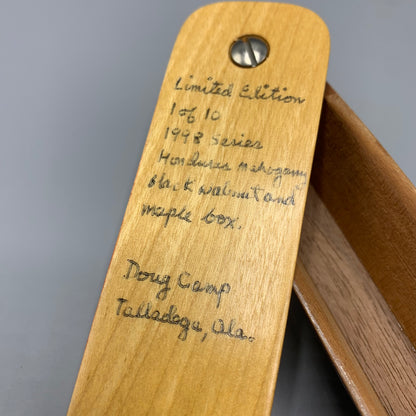 Limited Edition
1 of 10
1998 Series
Honduras Mahogany
black walnut and
maple box.
Doug Camp
Talladega, Ala.